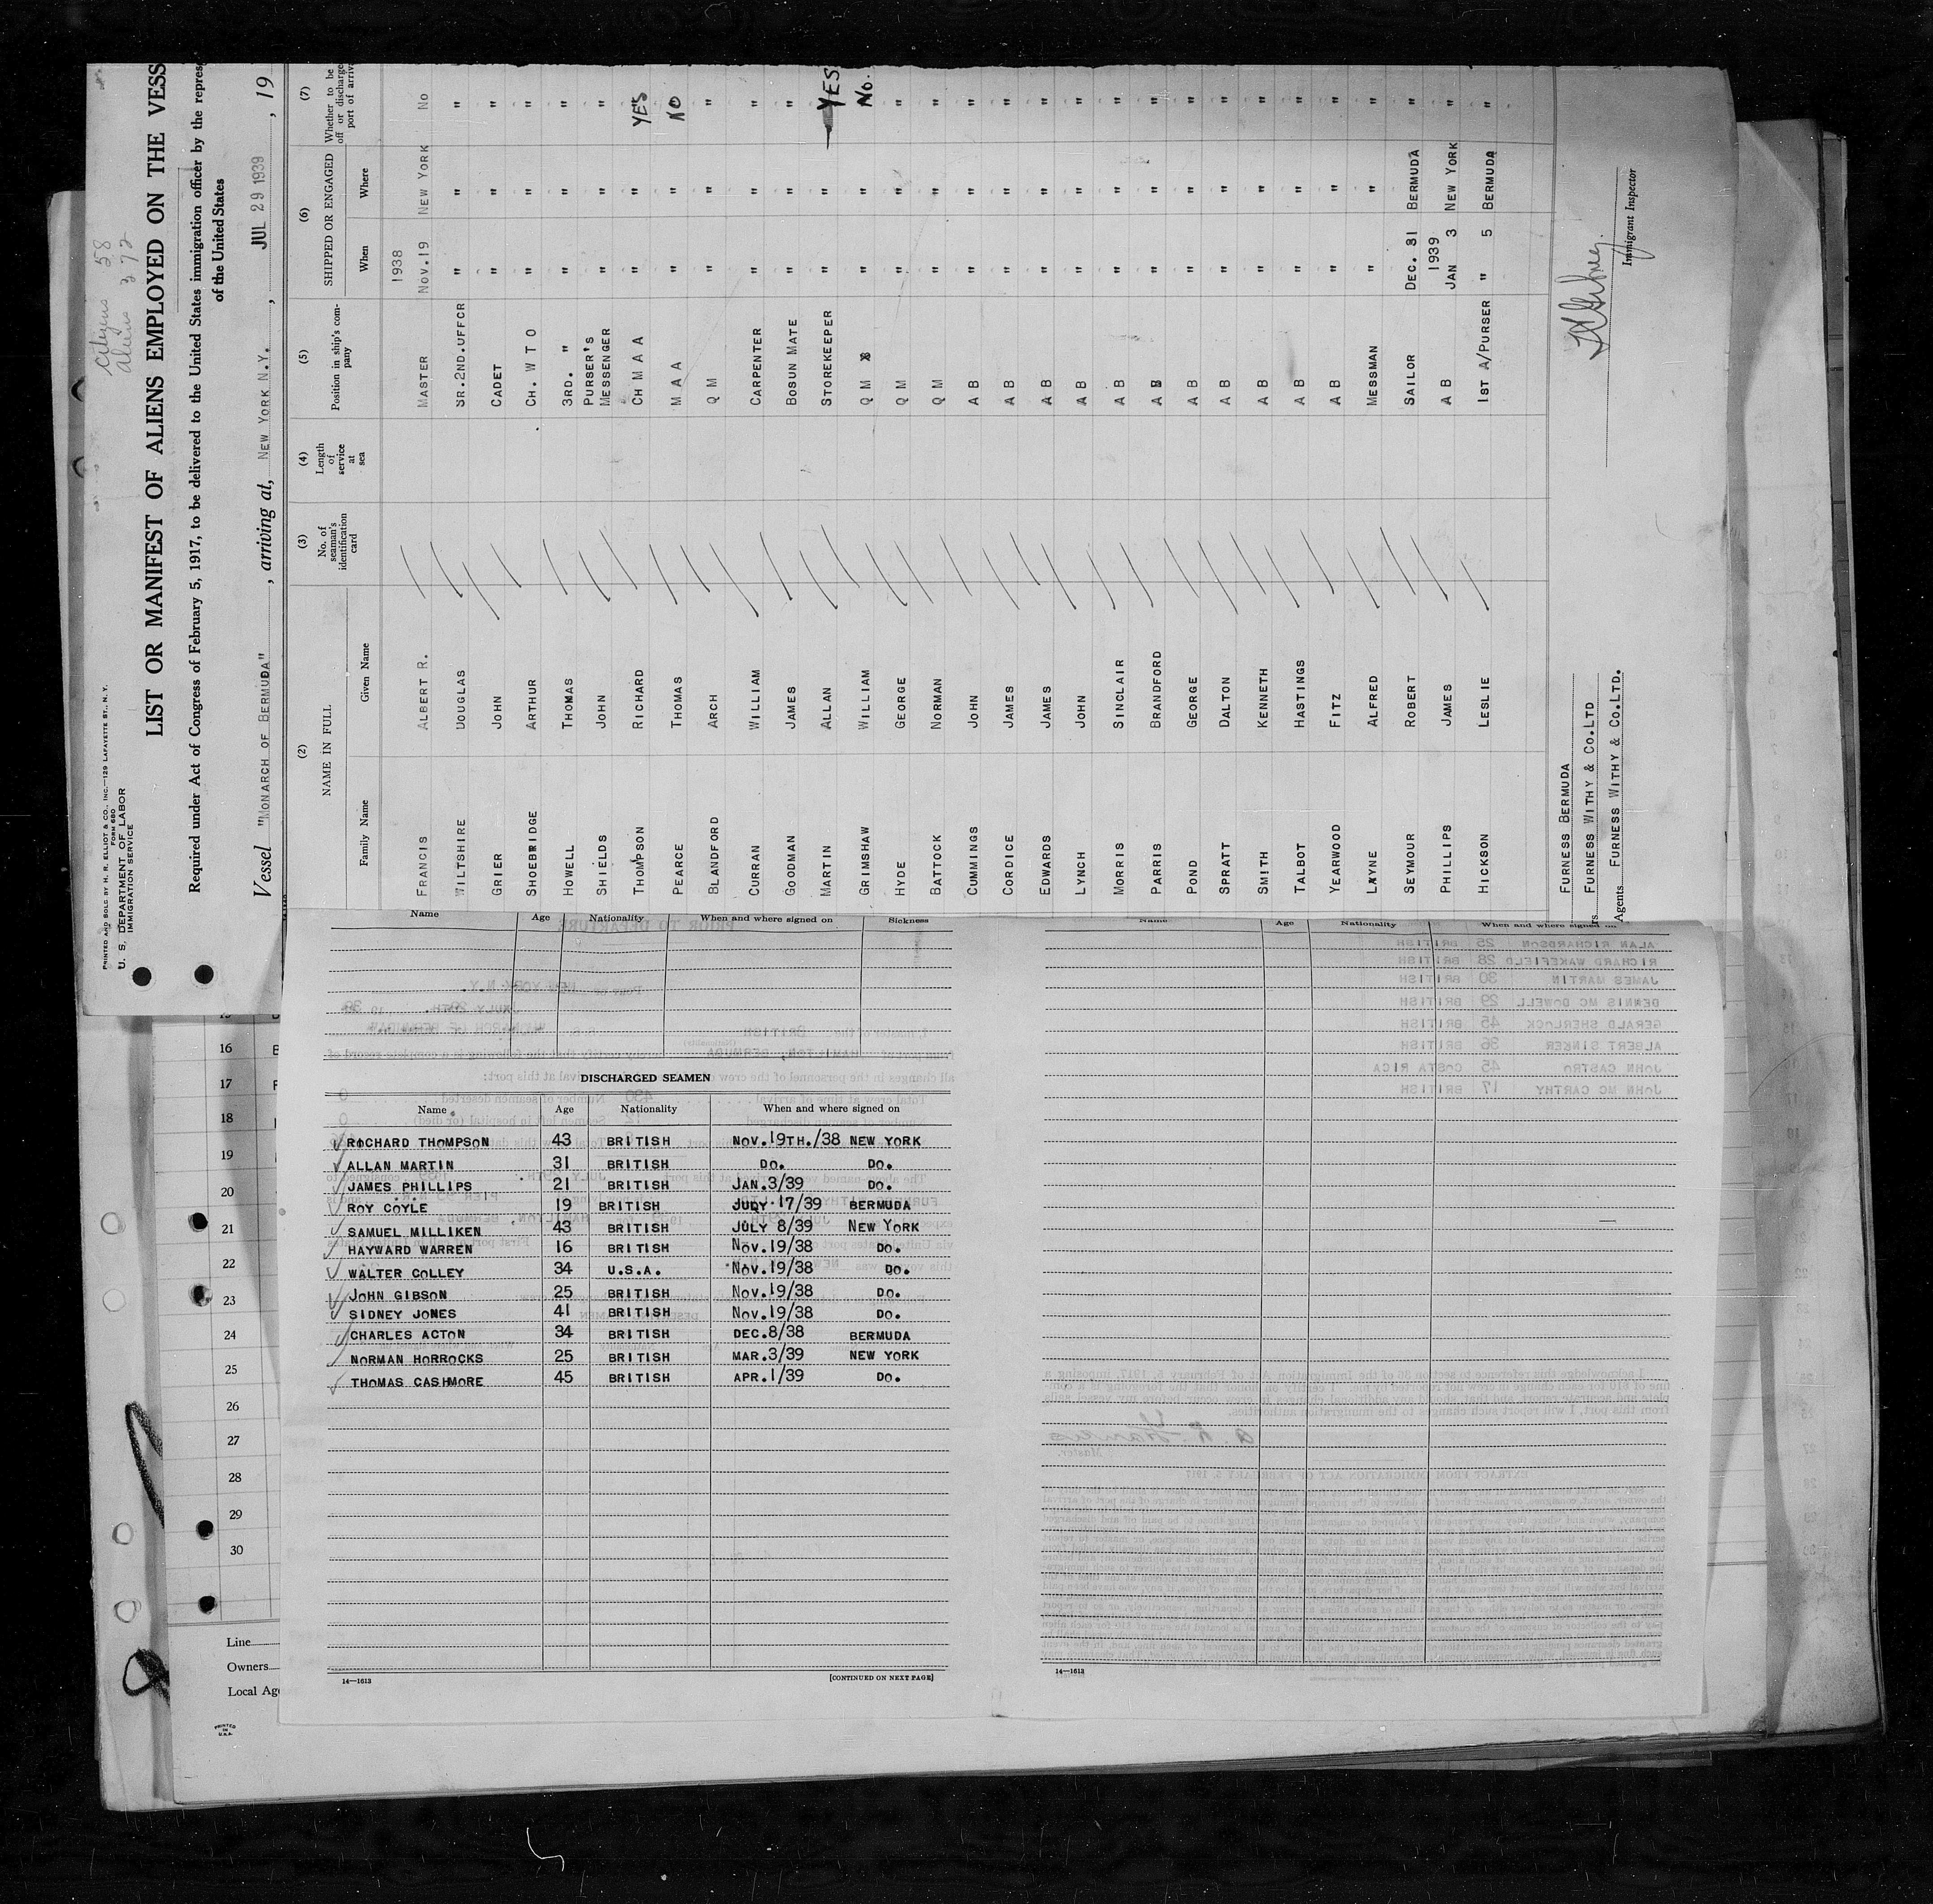 Citizens 58
Aliens 372
PRINTED AND SOLD BY H. R. ELLIOT & CO., INC.—129 LAFAYETTE ST., N. Y.
FORM 680
U. S. DEPARTMENT OF LABOR
IMMIGRATION SERVICE
LIST OR MANIFEST OF ALIENS EMPLOYED ON THE VESS
Required under Act of Congress of February 5, 1917, to be delivered to the United States immigration officer by the repres
of the United States
Vessel "MONARCH OF BERMUDA" , arriving at, NEW YORK N.Y. , JUL 29 1939 , 19
(2) (3) (4) (5) (6) (7)
NAME IN FULL No. of seaman's identification card Length of service at sea Position in ship's company SHIPPED OR ENGAGED Whether to be off or discharge port of arriv
Family Name Given Name When Where
1938
FRANCIS ALBERT R. MASTER Nov.19 NEW YORK No
WILTSHIRE DOUGLAS SR.2ND.OFFCR " " "
GRIER JOHN CADET " " "
SHOEBRIDGE ARTHUR CH. W T O " " "
HOWELL THOMAS 3RD. " " " "
SHIELDS JOHN PURSER'S MESSENGER " " "
THOMPSON RICHARD CH M A A " " YES
PEARCE THOMAS M A A " " NO
BLANDFORD ARCH Q M " " "
CURRAN WILLIAM CARPENTER " " "
GOODMAN JAMES BOSUN MATE " " "
MARTIN ALLAN STOREKEEPER " " YES
GRIMSHAW WILLIAM Q M " " No.
HYDE GEORGE Q M " " "
BATTOCK NORMAN Q M " " "
CUMMINGS JOHN A B " " "
CORDICE JAMES A B " " "
EDWARDS JAMES A B " " "
LYNCH JOHN A B " " "
MORRIS SINCLAIR A B " " "
PARRIS BRANDFORD A B " " "
POND GEORGE A B " " "
SPRATT DALTON A B " " "
SMITH KENNETH A B " " "
TALBOT HASTINGS A B " " "
YEARWOOD FITZ A B " " "
LAYNE ALFRED MESSMAN " " "
SEYMOUR ROBERT SAILOR DEC. 31 BERMUDA "
1939
PHILLIPS JAMES A B JAN 3 NEW YORK "
HICKSON LESLIE 1ST A/PURSER " 5 BERMUDA "
FURNESS BERMUDA
rs FURNESS WITHY & CO.LTD
Agents FURNESS WITHY & CO.LTD.
Immigrant Inspector
Name Age Nationality When and where signed on Sickness
DISCHARGED SEAMEN
Name Age Nationality When and where signed on
RICHARD THOMPSON 43 BRITISH NOV.19TH./38 NEW YORK
ALLAN MARTIN 31 BRITISH DO. DO.
JAMES PHILLIPS 21 BRITISH JAN.3/39 DO.
ROY COYLE 19 BRITISH JULY 17/39 BERMUDA
SAMUEL MILLIKEN 43 BRITISH JULY 8/39 NEW YORK
HAYWARD WARREN 16 BRITISH NOV.19/38 DO.
WALTER COLLEY 34 U.S.A. NOV.19/38 DO.
JOHN GIBSON 25 BRITISH NOV.19/38 DO.
SIDNEY JONES 41 BRITISH NOV.19/38 DO.
CHARLES ACTON 34 BRITISH DEC.8/38 BERMUDA
NORMAN HORROCKS 25 BRITISH MAR.3/39 NEW YORK
THOMAS CASHMORE 45 BRITISH APR.1/39 DO.
14—1613 [CONTINUED ON NEXT PAGE]
Name Age Nationality When and where signed on
ALAN RICHARDSON 25 BRITISH
RICHARD WAKEFIELD 28 BRITISH
JAMES MARTIN 30 BRITISH
DENNIS MC DOWELL 29 BRITISH
GERALD SHERLOCK 45 BRITISH
ALBERT SINKER 36 BRITISH
JOHN CASTRO 45 COSTA RICA
JOHN MC CARTHY 17 BRITISH
14—1613
16
17
18
19
20
21
22
23
24
25
26
27
28
29
30
Line
Owners
Local Age
PRINTED IN U.S.A.